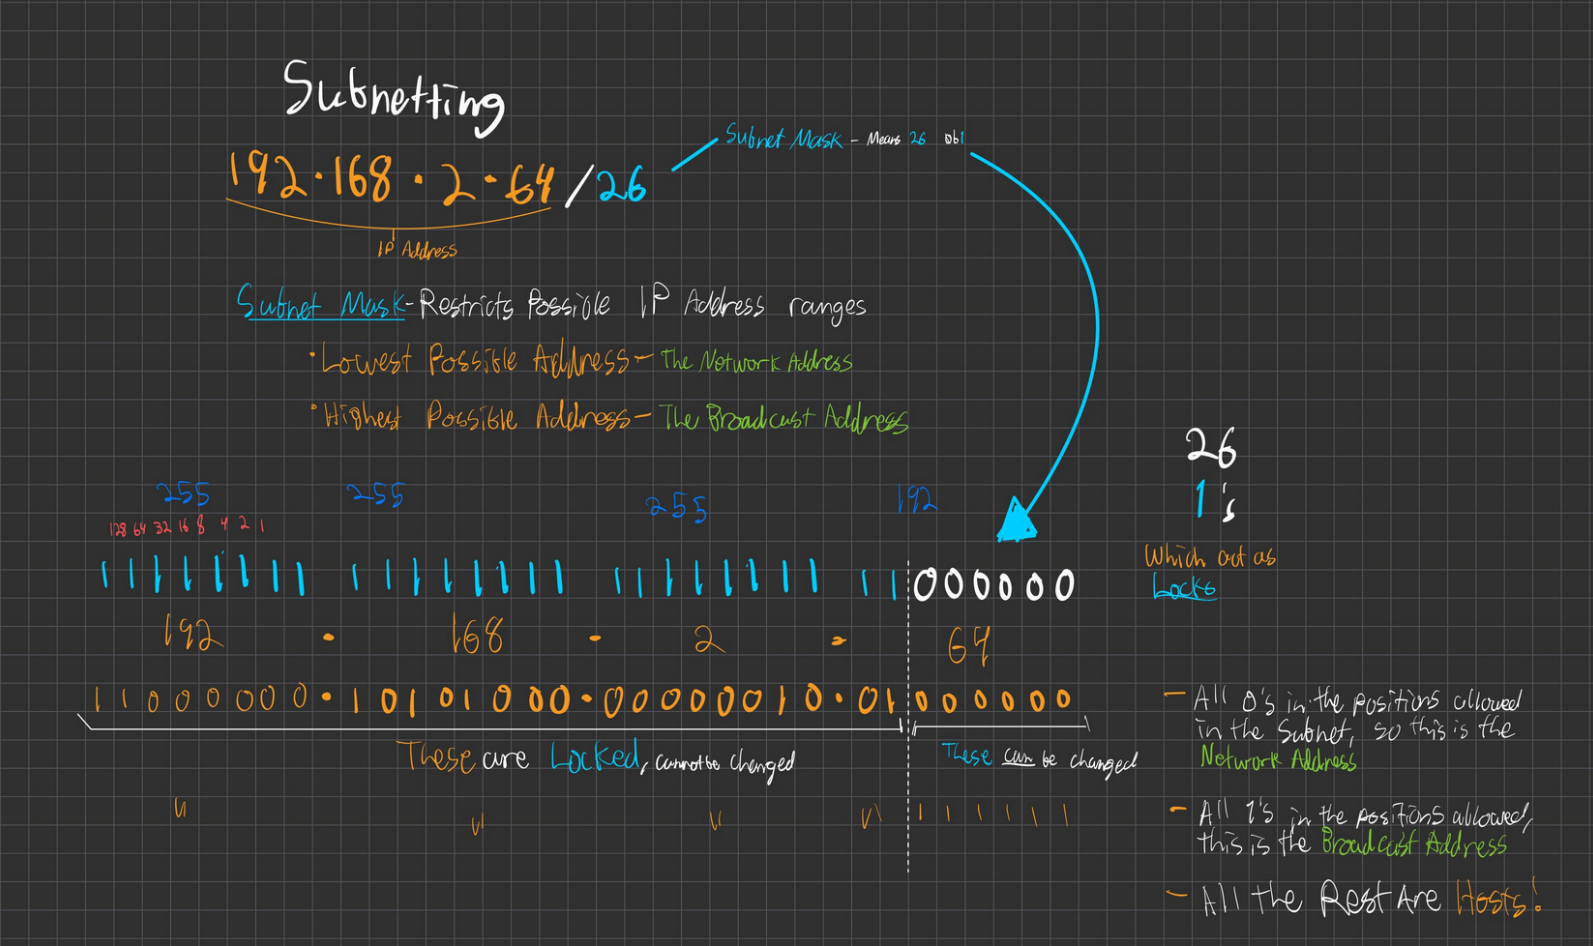 Subnetting
192.168.2.64/26
Subnet Mask - Means 26
IP Address
Subnet Mask - Restricts Possible IP Address ranges
· Lowest Possible Address - The Network Address
· Highest Possible Address - The Broadcast Address
26
1's
Which act as
Locks
255 255 255 192
128 64 32 16 8 4 2 1
11111111 11111111 11111111 11000000
192 . 168 . 2 . 64
11000000.10101000.00000010.01000000
These are Locked, cannot be changed
These can be changed
111111
- All 0's in the positions allowed
in the Subnet, so this is the
Network Address
- All 1's in the positions allowed,
this is the Broadcast Address
- All the Rest Are Hosts!